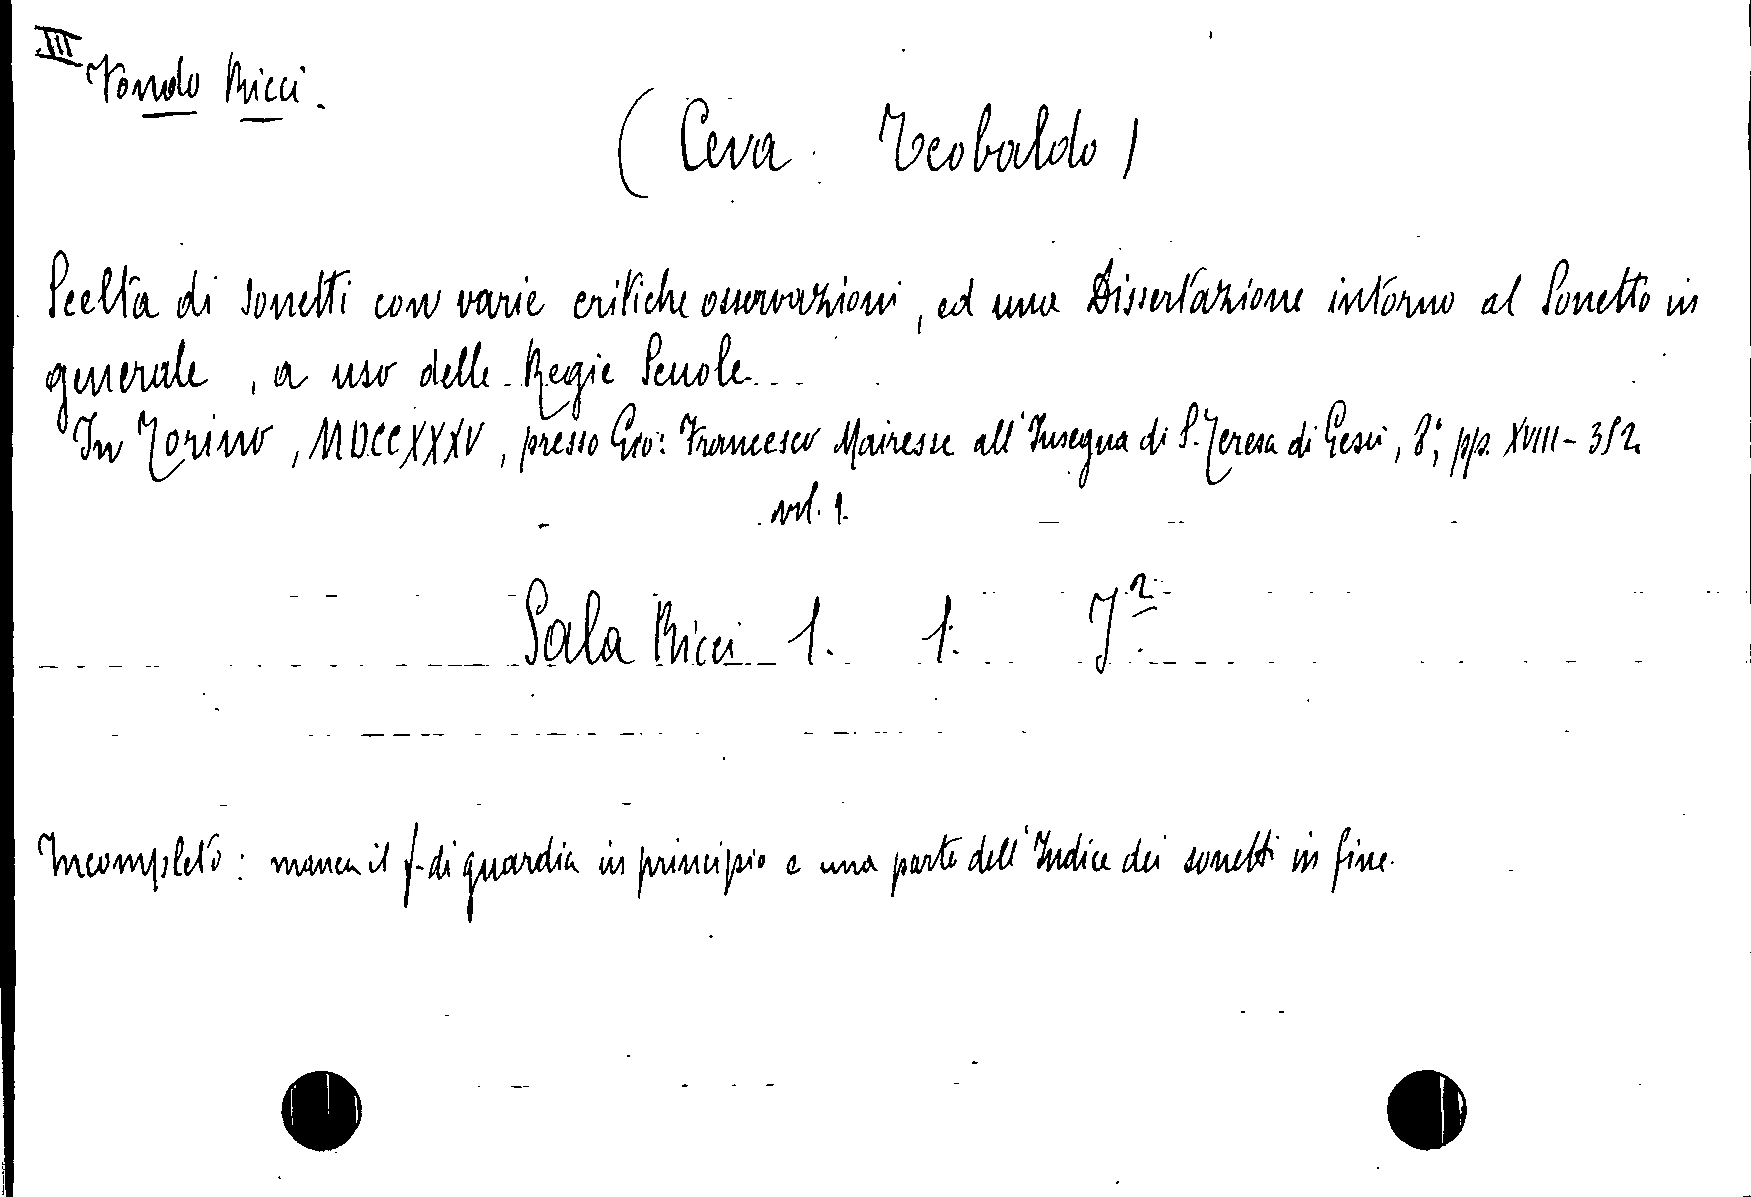 III
Fondo Ricci.
(Ceva Teobaldo)
Scelta di sonetti con varie critiche osservazioni, ed una Dissertazione intorno al Sonetto in
generale, a uso delle Regie Scuole.
In Torino, MDCCXXXV, presso Gio: Francesco Mairesse all'Insegna di S. Teresa di Gesù, 8°, pp. XVIII-352
vol. 1.
Sala Ricci 1. 1.
Incompleto: manca il f. di guardia in principio e una parte dell'Indice dei sonetti in fine.